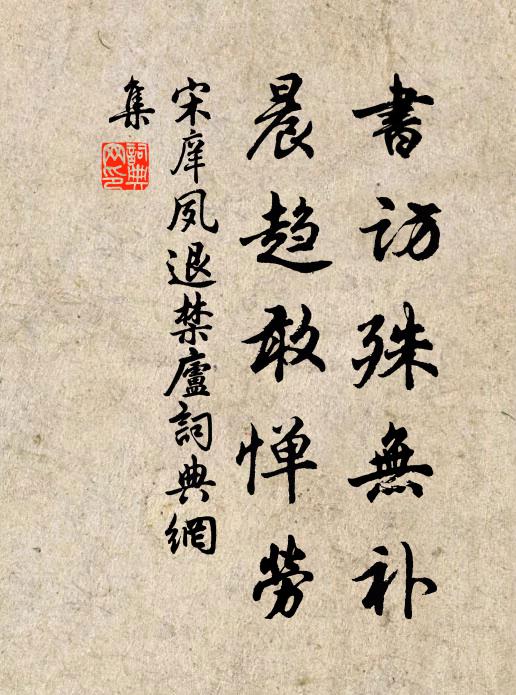 書访殊無补
晨趋敢惮勞
宋庠夙退禁廬詞典網
集
詞典
网印